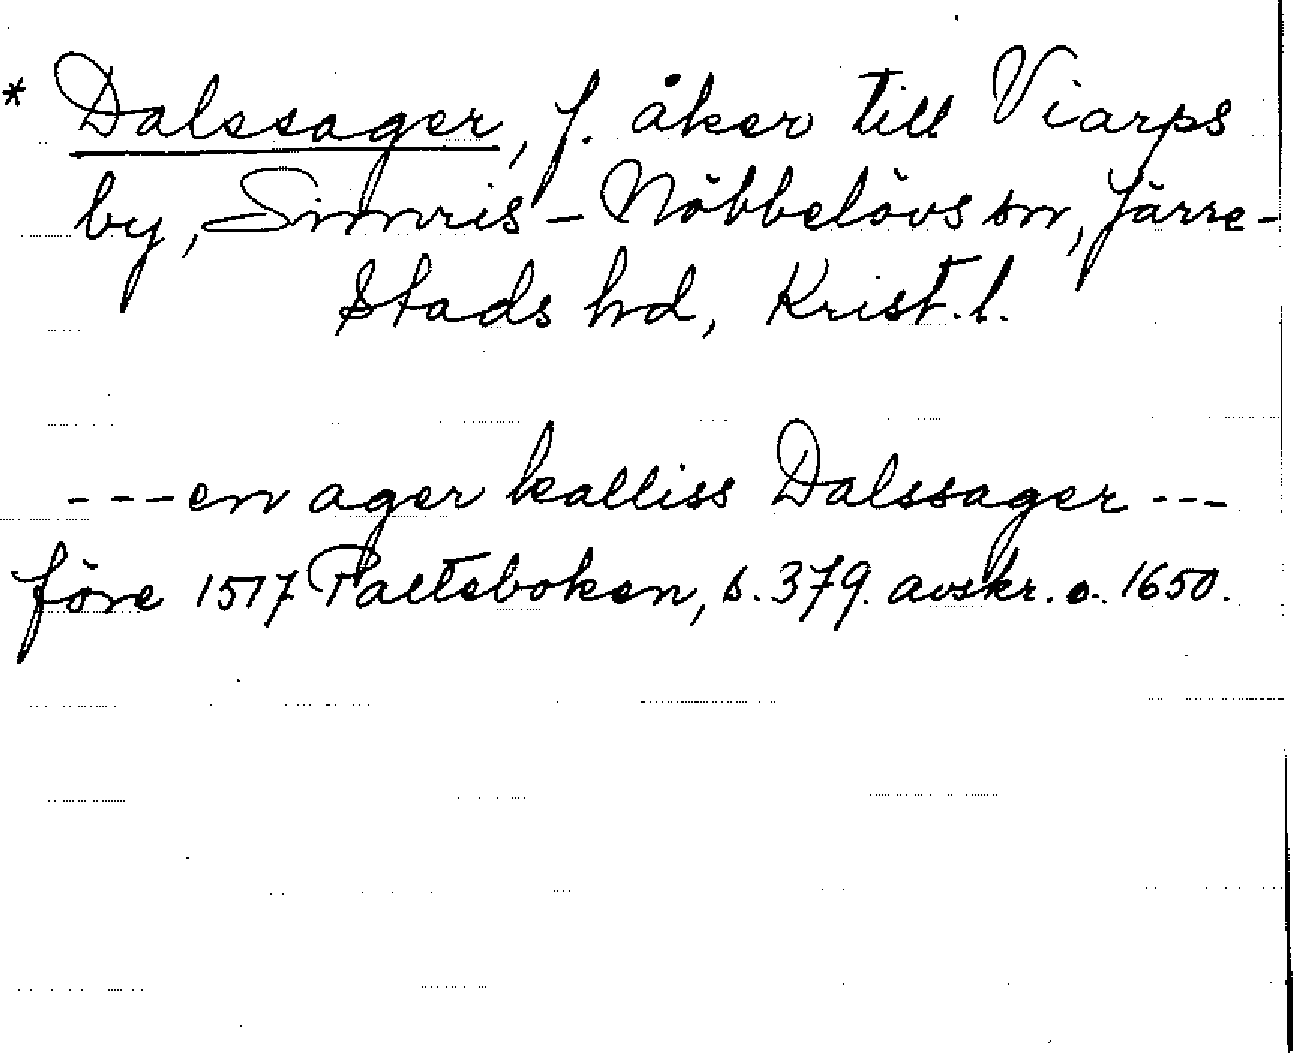 * Dalssager, f. åker till Viarps
by, Simris-Nöbbelövs sn, Järre-
stads hd, Krist.l.
---en ager kalliss Dalssager---
före 1517 Palteboken, s. 379. avskr. o. 1650.